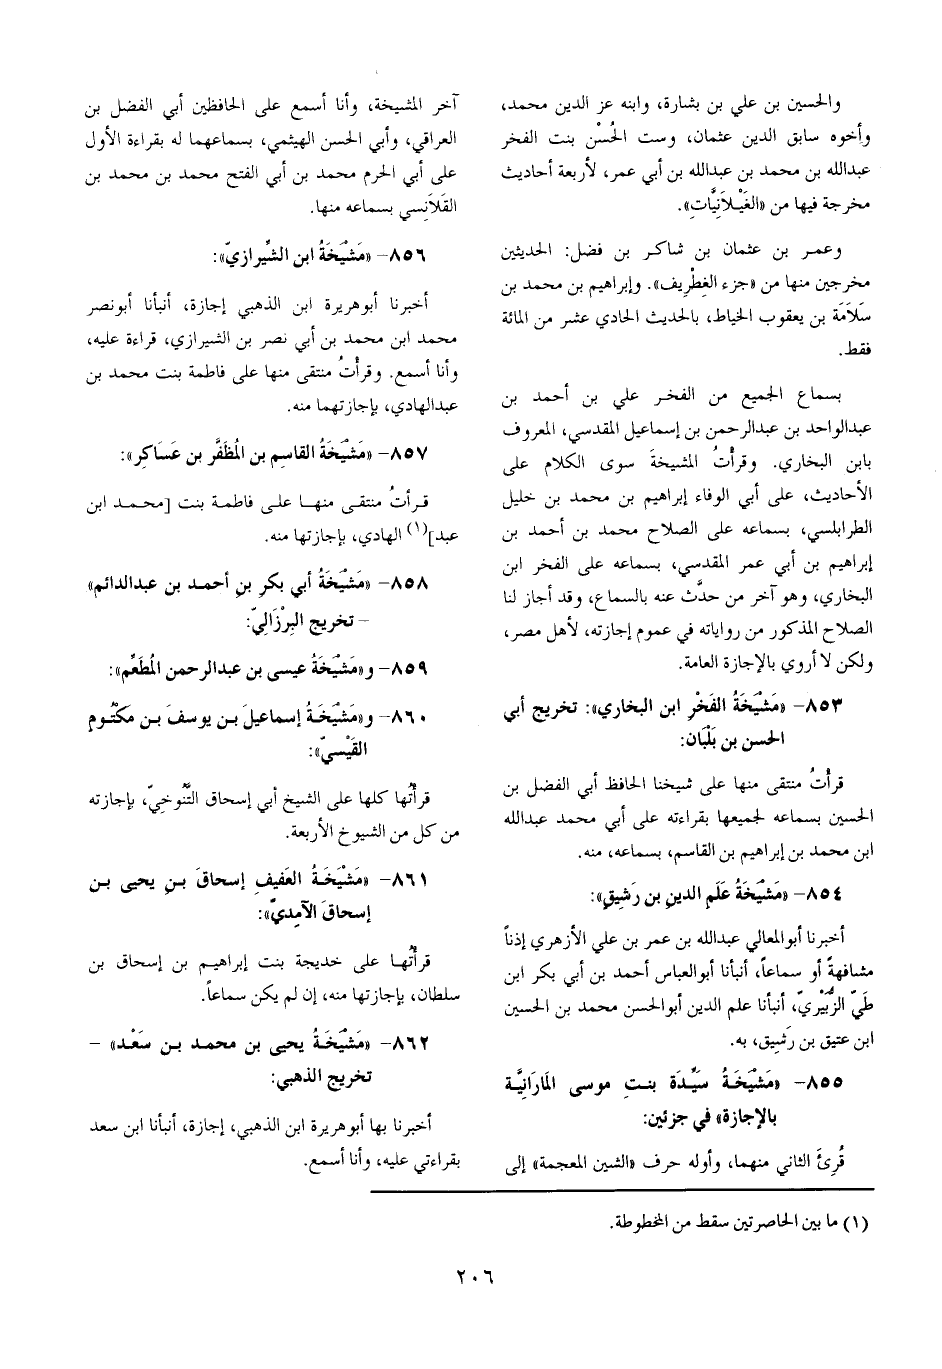 والحسين بن علي بن بشارة، وابنه عز الدين محمد،
وأخوه سابق الدين عثمان، وست الحُسْن بنت الفخر
عبدالله بن محمد بن عبدالله بن أبي عمر، لأربعة أحاديث
مخرجة فيها من «الغَيْلاَنِيَّاتِ».
وعمر بن عثمان بن شاكر بن فضل: الحديثين
مخرجين منها من «جزء الغِطْرِيف». وإبراهيم بن محمد بن
سَلاَمَة بن يعقوب الخياط، بالحديث الحادي عشر من المائة
فقط.
بسماع الجميع من الفخر علي بن أحمد بن
عبدالواحد بن عبدالرحمن بن إسماعيل المقدسي، المعروف
بابن البخاري. وقرأتُ المشيخةَ سوى الكلام على
الأحاديث، على أبي الوفاء إبراهيم بن محمد بن خليل
الطرابلسي، بسماعه على الصلاح محمد بن أحمد بن
إبراهيم بن أبي عمر المقدسي، بسماعه على الفخر ابن
البخاري، وهو آخر من حدَّث عنه بالسماع، وقد أجاز لنا
الصلاح المذكور من رواياته في عموم إجازته، لأهل مصر،
ولكن لا أروي بالإجازة العامة.
٨٥٣- «مَشْيَخَةُ الفَخْرِ ابن البخاري»: تخريج أبي
الحسن بن بَلْبَان:
قرأتُ منتقى منها على شيخنا الحافظ أبي الفضل بن
الحسين بسماعه لجميعها بقراءته على أبي محمد عبدالله
ابن محمد بن إبراهيم بن القاسم، بسماعه، منه.
٨٥٤- «مَشْيَخَةُ عَلَمِ الدينِ بن رَشِيقٍ»:
أخبرنا أبوالمعالي عبدالله بن عمر بن علي الأزهري إذناً
مشافهةً أو سماعاً، أنبأنا أبوالعباس أحمد بن أبي بكر ابن
طَيّ الزُّبَيْرِيّ، أنبأنا علم الدين أبوالحسن محمد بن الحسين
ابن عتيق بن رَشِيق، به.
٨٥٥- «مَشْيَخَةُ سَيِّدَة بنت موسى المَارَانِيَّة
بالإجازة» في جزئين:
قُرِئَ الثاني منهما، وأوله حرف «الشين المعجمة» إلى
آخر المشيخة، وأنا أسمع على الحافظين أبي الفضل بن
العراقي، وأبي الحسن الهيثمي، بسماعهما له بقراءة الأول
على أبي الحرم محمد بن أبي الفتح محمد بن محمد بن
القَلاَنسي بسماعه منها.
٨٥٦- «مَشْيَخَةُ ابن الشِّيرازيّ»:
أخبرنا أبوهريرة ابن الذهبي إجازة، أنبأنا أبونصر
محمد ابن محمد بن أبي نصر بن الشيرازي، قراءة عليه،
وأنا أسمع. وقرأْتُ منتقى منها على فاطمة بنت محمد بن
عبدالهادي، بإجازتهما منه.
٨٥٧- «مَشْيَخَةُ القاسم بن المُظَفَّر بن عَسَاكِر»:
قرأتُ منتقى منها على فاطمة بنت [محمد ابن
عبد](١) الهادي، بإجازتها منه.
٨٥٨- «مَشْيَخَةُ أبي بكرِ بنِ أحمد بن عبدالدائم»
- تخريج البِرْزَاليّ:
٨٥٩- و«مَشْيَخَةُ عيسى بن عبدالرحمن المُطَعِّم»:
٨٦٠- و«مَشْيَخَةُ إسماعيلَ بن يوسفَ بن مكتُوم
القَيْسيّ»:
قرأتُها كلها على الشيخ أبي إسحاق التَّنُوخيّ، بإجازته
من كل من الشيوخ الأربعة.
٨٦١- «مَشْيَخَةُ العَفيفِ إسحاقَ بنِ يحيى بن
إسحاقَ الآمِديّ»:
قرأتُها على خديجة بنت إبراهيم بن إسحاق بن
سلطان، بإجازتها منه، إن لم يكن سماعاً.
٨٦٢- «مَشْيَخَةُ يحيى بن محمد بن سَعْد» -
تخريج الذهبي:
أخبرنا بها أبوهريرة ابن الذهبي، إجازة، أنبأنا ابن سعد
بقراءتي عليه، وأنا أسمع.
(١) ما بين الحاصرتين سقط من المخطوطة.
٢٠٦